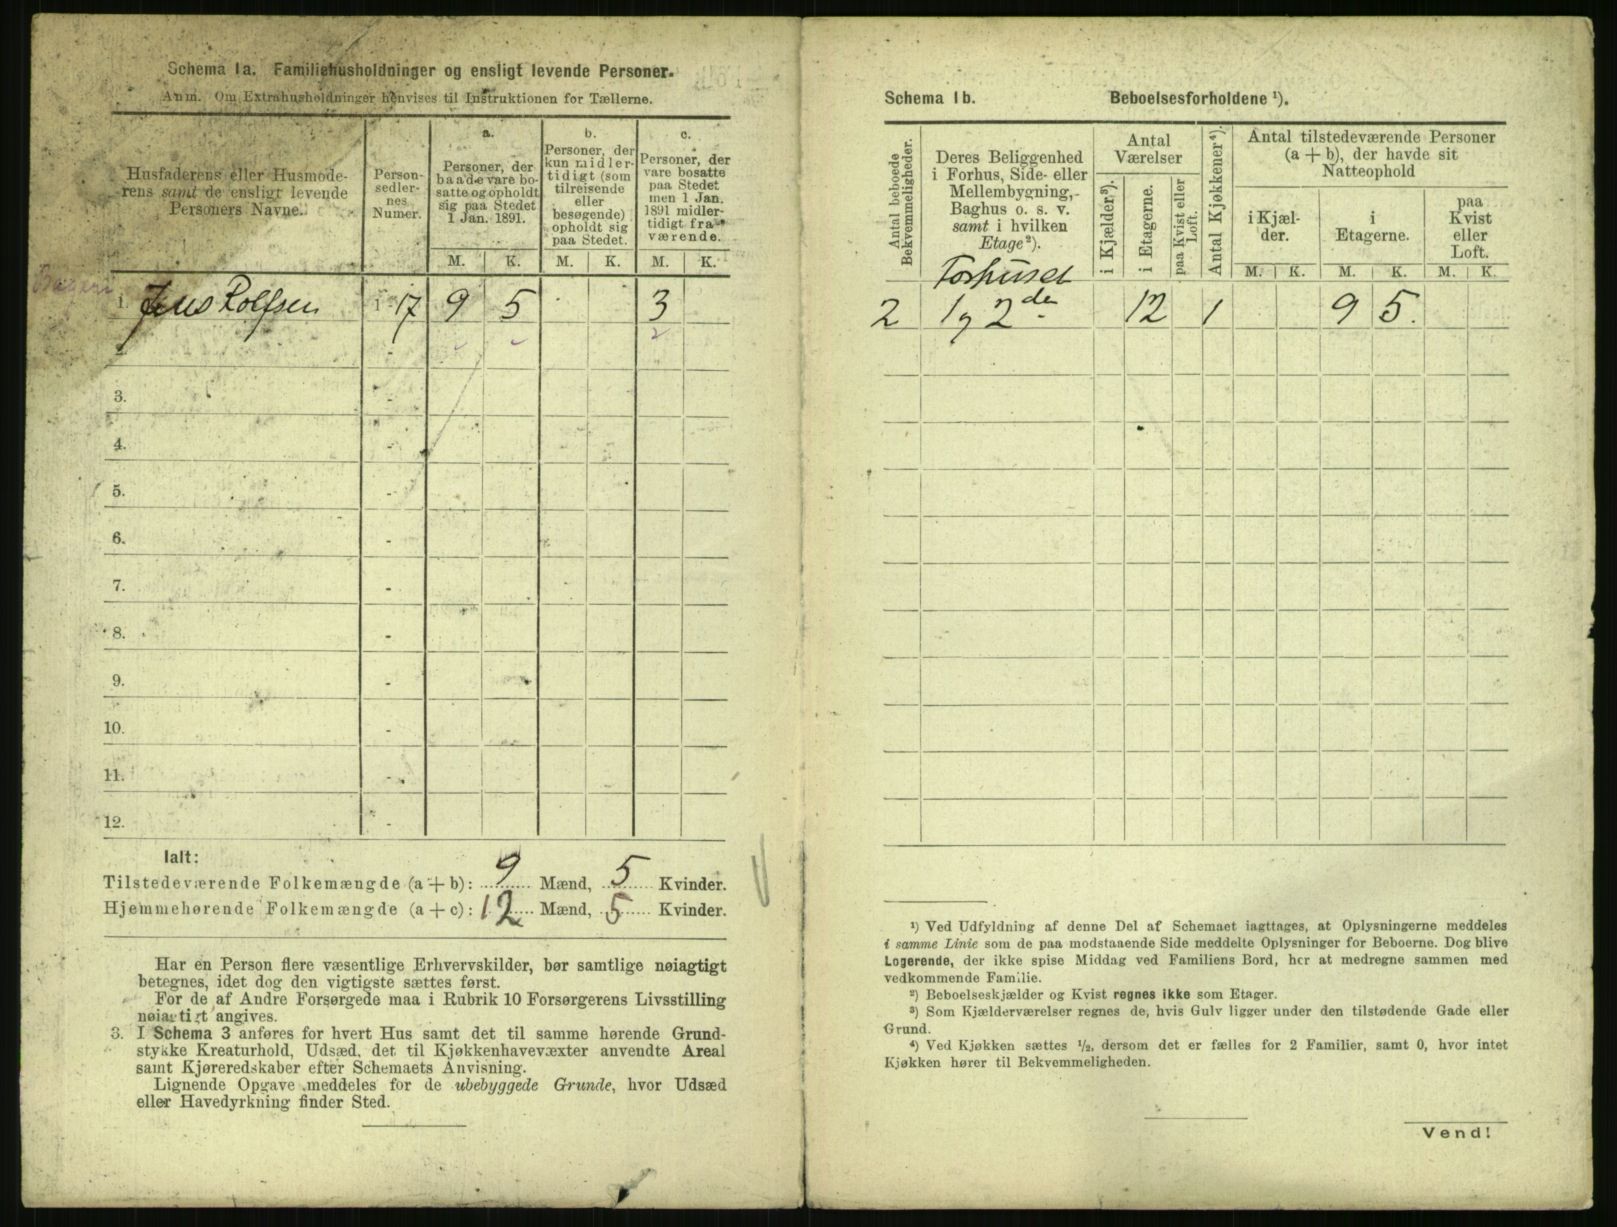 Schema 1a. Familiehusholdninger og ensligt levende Personer.
Anm. Om Extrahusholdninger henvises til Instruktionen for Tællerne.
Husfaderens eller Husmode-
rens samt de ensligt levende
Personers Navne.
Person-
sedler-
nes
Numer.
a.
Personer, der
baade vare bo-
satte og opholdt
sig paa Stedet
1 Jan. 1891.
b.
Personer, der
kun midler-
tidigt (som
tilreisende
eller
besøgende)
opholdt sig
paa Stedet.
c.
Personer, der
vare bosatte
paa Stedet
men 1 Jan.
1891 midler-
tidigt fra-
værende.
M. K. M. K. M. K.
1. Jens Rolfsen 1 - 17 9 5 3
2. -
3. -
4. -
5. -
6. -
7. -
8. -
9. -
10. -
11. -
12. -
Ialt:
Tilstedeværende Folkemængde (a + b): 9 Mænd, 5 Kvinder.
Hjemmehørende Folkemængde (a + c): 12 Mænd, 5 Kvinder.
Har en Person flere væsentlige Erhvervskilder, bør samtlige nøiagtigt
betegnes, idet dog den vigtigste sættes først.
For de af Andre Forsørgede maa i Rubrik 10 Forsørgerens Livsstilling
nøiagtigt angives.
3. I Schema 3 anføres for hvert Hus samt det til samme hørende Grund-
stykke Kreaturhold, Udsæd, det til Kjøkkenhavevæxter anvendte Areal
samt Kjøreredskaber efter Schemaets Anvisning.
Lignende Opgave meddeles for de ubebyggede Grunde, hvor Udsæd
eller Havedyrkning finder Sted.
Schema 1b. Beboelsesforholdene ¹).
Antal beboede
Bekvemmeligheder.
Deres Beliggenhed
i Forhus, Side- eller
Mellembygning,
Baghus o. s. v.
samt i hvilken
Etage ²).
Antal
Værelser
i Kjælder ³).
i Etagerne.
paa Kvist eller
Loft.
Antal Kjøkkener ⁴).
Antal tilstedeværende Personer
(a + b), der havde sit
Natteophold
i Kjæl-
der.
i
Etagerne.
paa
Kvist
eller
Loft.
M. K. M. K. M. K.
Forhuset
2 1 og 2den 12 1 9 5.
¹) Ved Udfyldning af denne Del af Schemaet iagttages, at Oplysningerne meddeles
i samme Linie som de paa modstaaende Side meddelte Oplysninger for Beboerne. Dog blive
Logerende, der ikke spise Middag ved Familiens Bord, her at medregne sammen med
vedkommende Familie.
²) Beboelseskjælder og Kvist regnes ikke som Etager.
³) Som Kjælderværelser regnes de, hvis Gulv ligger under den tilstødende Gade eller
Grund.
⁴) Ved Kjøkken sættes ½, dersom det er fælles for 2 Familier, samt 0, hvor intet
Kjøkken hører til Bekvemmeligheden.
Vend!